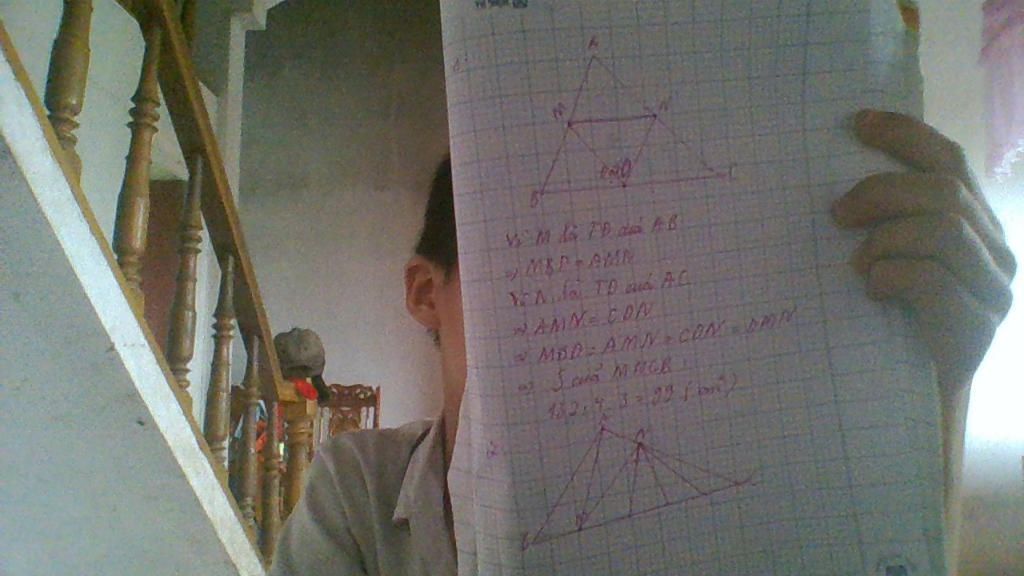 1.
A
M N
B D C
Vì M là TĐ của AB
⇒ MBD = AMN
Vì N là TĐ của AC
⇒ AMN = CDN
⇒ MBD = AMN = CDN = DMN
⇒ S của MNCB:
132 : 4 . 3 = 99 (cm²)
2.